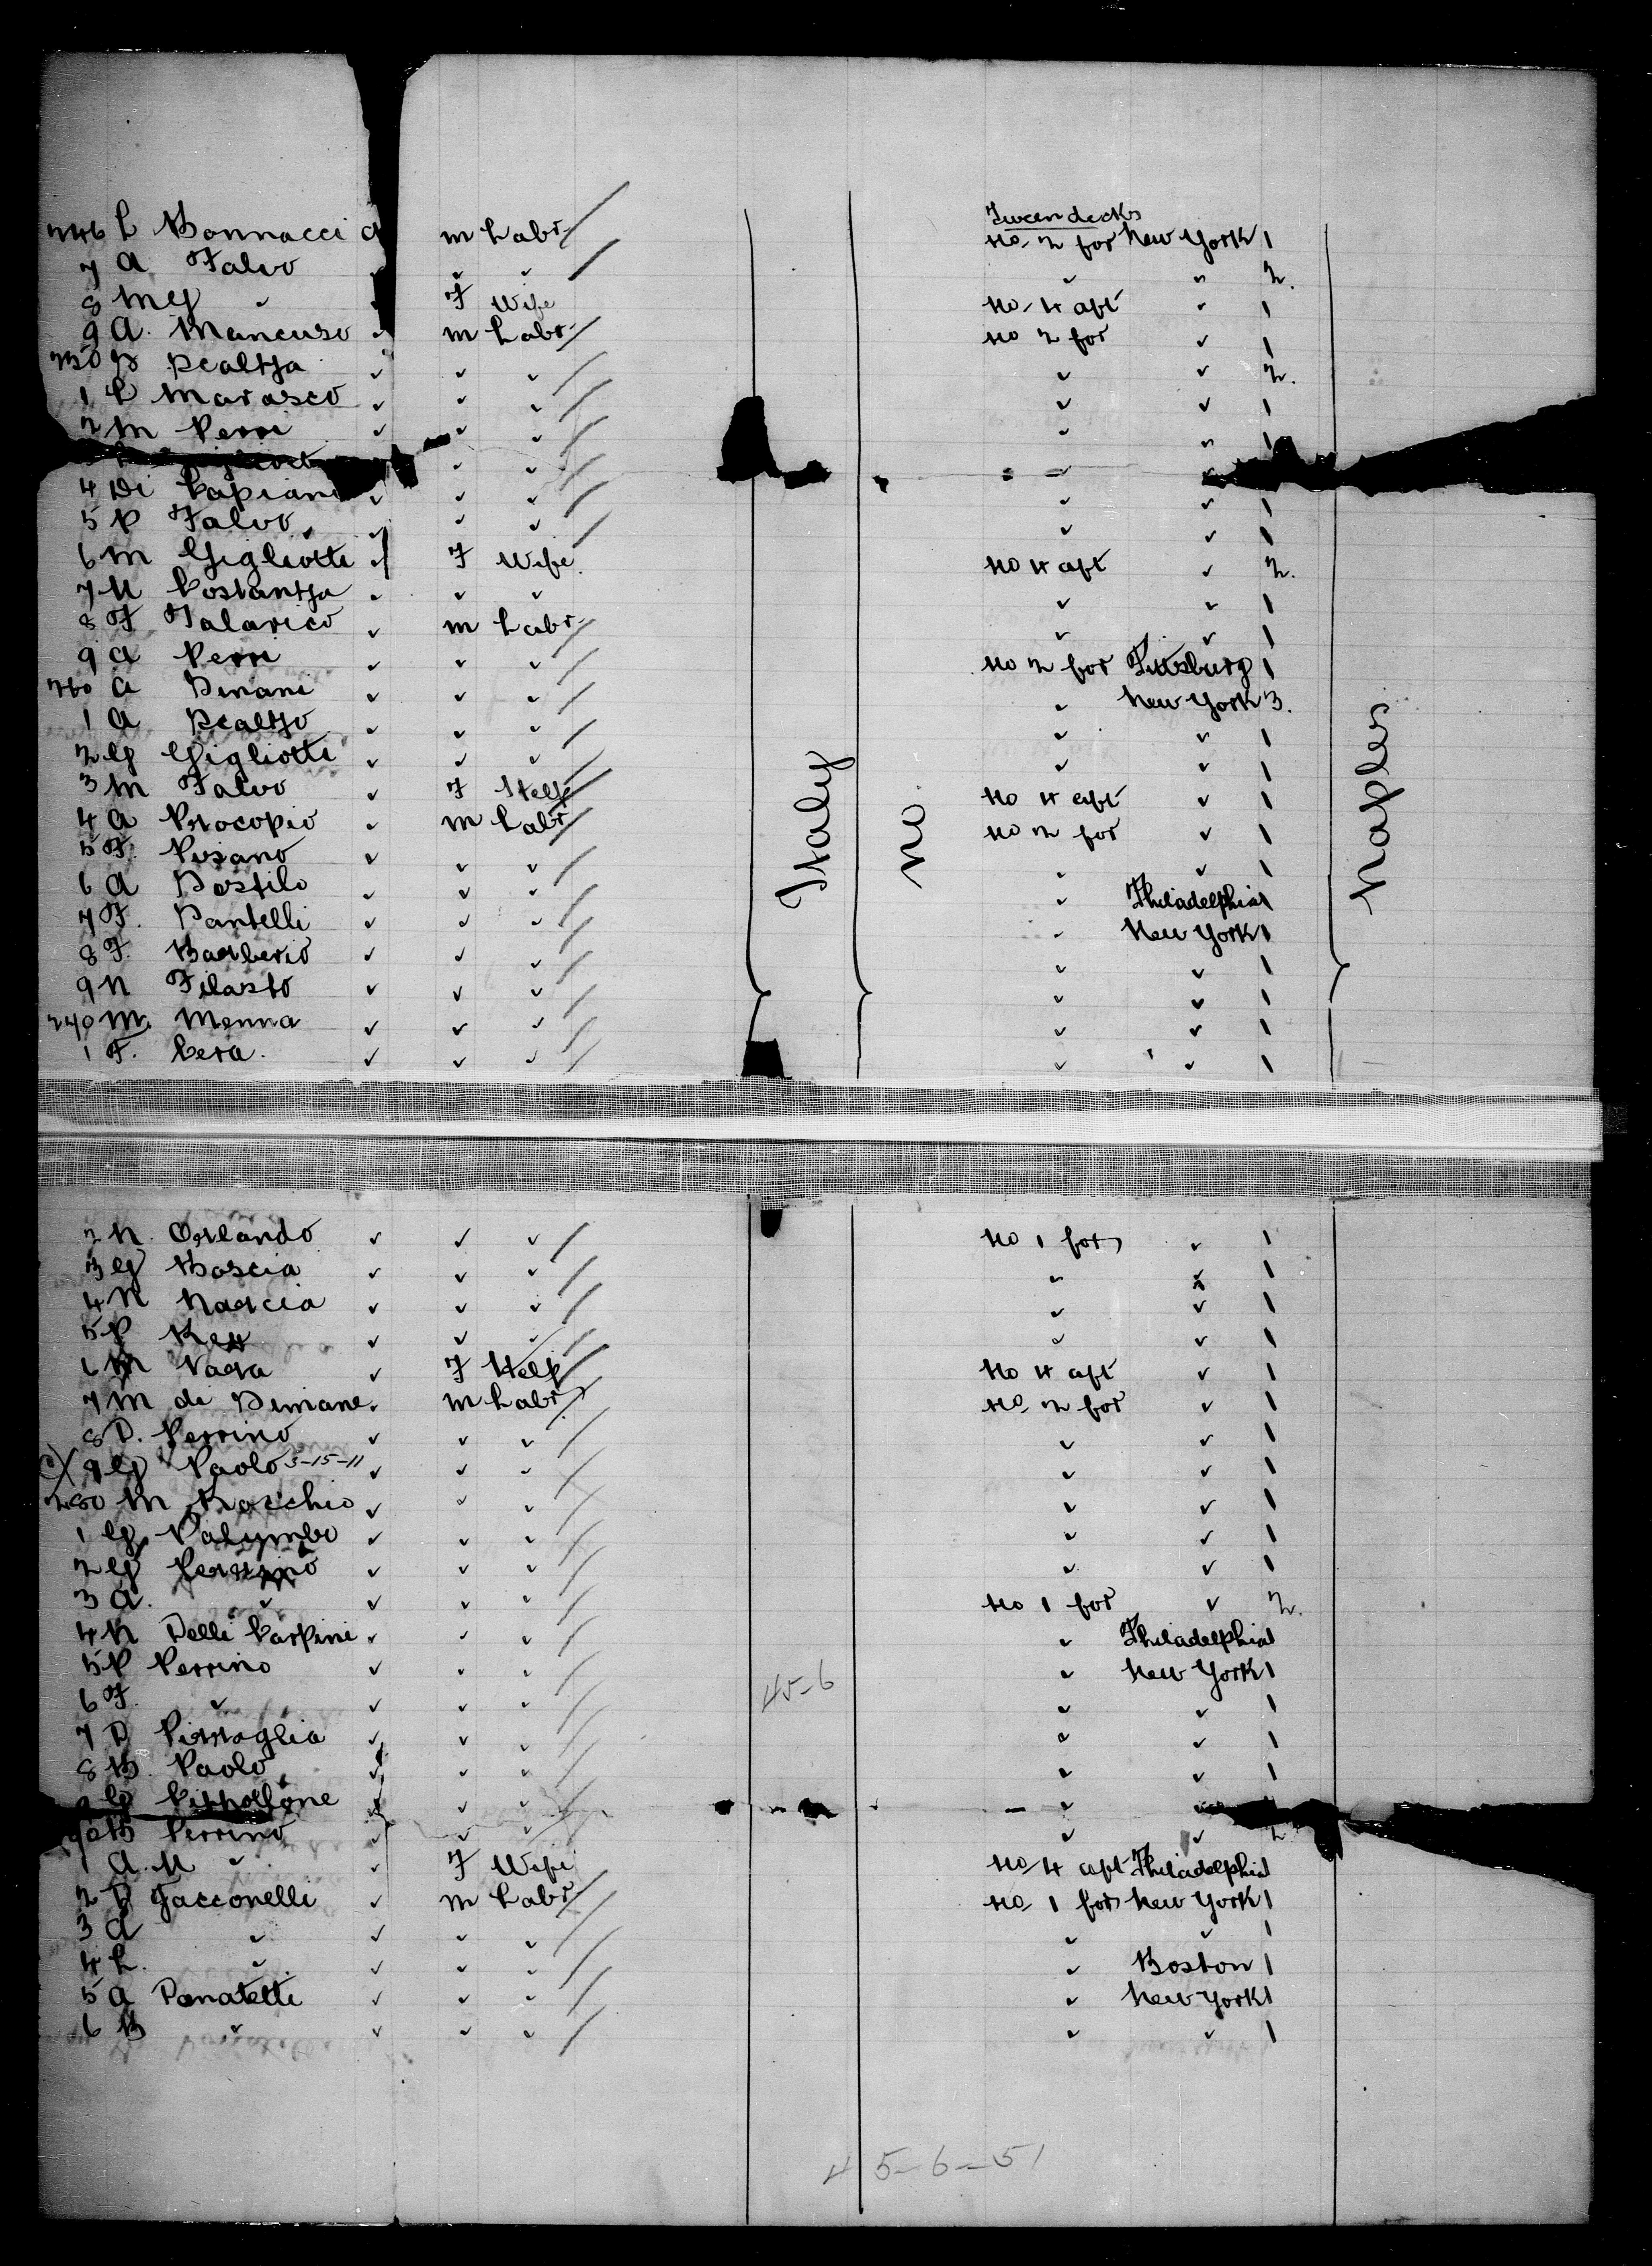 Tweendecks
246 L Bonnacci m Labr No 2 for New York 1
7 A Falvo ✓ ✓ ✓ ✓ ✓ 2.
8 M G ✓ F Wife No 4 aft ✓ 1
9 A. Mancuso ✓ m Labr No 2 for ✓ 1
250 Scaltza ✓ ✓ ✓ ✓ ✓ 2.
1 Marasco ✓ ✓ ✓ ✓ ✓ 1
2 M Perri ✓ ✓ ✓ ✓ ✓ 1
✓ ✓ ✓
4 Di ✓ ✓ ✓ ✓ ✓ 1
5 P Falvo ✓ ✓ ✓ ✓ ✓ 1
6 M Gigliotti ✓ F Wife No 4 aft ✓ 2.
7 Costantza ✓ ✓ ✓ ✓ ✓ 1
8 F Talarico ✓ m Labr ✓ ✓ 1
9 A Perri ✓ ✓ ✓ No 2 for Pittsburg 1
260 A ✓ ✓ ✓ ✓ New York 3.
1 A Scaltzo ✓ ✓ ✓ ✓ ✓ 1
2 G Gigliotti ✓ ✓ ✓ ✓ ✓ 1
3 M Falvo ✓ F Help No 4 aft ✓ 1
4 A Procopio ✓ m Labr No 2 for ✓ 1
5 F. Pisano ✓ ✓ ✓ ✓ ✓ 1
6 A ✓ ✓ ✓ ✓ Philadelphia 1
7 F. ✓ ✓ ✓ ✓ New York 1
8 F. Barberio ✓ ✓ ✓ ✓ ✓ 1
9 N Filasto ✓ ✓ ✓ ✓ ✓ 1
270 M. Menna ✓ ✓ ✓ ✓ ✓ 1
1 F. Cera ✓ ✓ ✓ ✓ ✓ 1
Italy
No
Naples
2 N. Orlando ✓ ✓ ✓ No 1 for ✓ 1
3 G Boscia ✓ ✓ ✓ ✓ ✓ 1
4 N Narcia ✓ ✓ ✓ ✓ ✓ 1
5 P ✓ ✓ ✓ ✓ ✓ 1
6 M ✓ F Help No 4 aft ✓ 1
7 M di Simane ✓ m Labr No 2 for ✓ 1
8 D. Perrino ✓ ✓ ✓ ✓ ✓ 1
9 G Paolo 3-15-11 ✓ ✓ ✓ ✓ ✓ 1
280 M Racchio ✓ ✓ ✓ ✓ ✓ 1
1 G Palumbo ✓ ✓ ✓ ✓ ✓ 1
2 G Perrino ✓ ✓ ✓ ✓ ✓ 1
3 A. ✓ ✓ ✓ ✓ No 1 for ✓ 2.
4 N Delli Carpini ✓ ✓ ✓ ✓ Philadelphia 1
5 P Perrino ✓ ✓ ✓ ✓ New York 1
45-6
6 F. ✓ ✓ ✓ ✓ ✓ ✓ 1
7 D ✓ ✓ ✓ ✓ ✓ 1
8 B. Paolo ✓ ✓ ✓ ✓ ✓ 1
9 G ✓ ✓ ✓ ✓
90 B Perrino ✓ ✓ ✓ ✓ ✓ 2
1 A. M ✓ ✓ F Wife No 4 aft Philadelphia 1
2 D Jacconelli ✓ m Labr No 1 for New York 1
3 A ✓ ✓ ✓ ✓ ✓ ✓ 1
4 L. ✓ ✓ ✓ ✓ ✓ Boston 1
5 A Donatelli ✓ ✓ ✓ ✓ New York 1
6 B ✓ ✓ ✓ ✓ ✓ ✓ 1
45-6-51